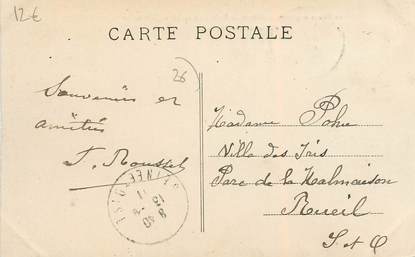 12€
CARTE POSTALE
26
Souvenirs et
amitiés
J. Roussel
Madame Pohu
Villa des Iris
Parc de la Malmaison
Rueil
S. et O
8 40